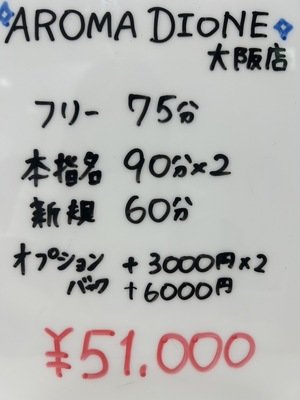 AROMA DIONE
大阪店
フリー 75分
本指名 90分×2
新規 60分
オプション +3000円×2
バック +6000円
¥51.000